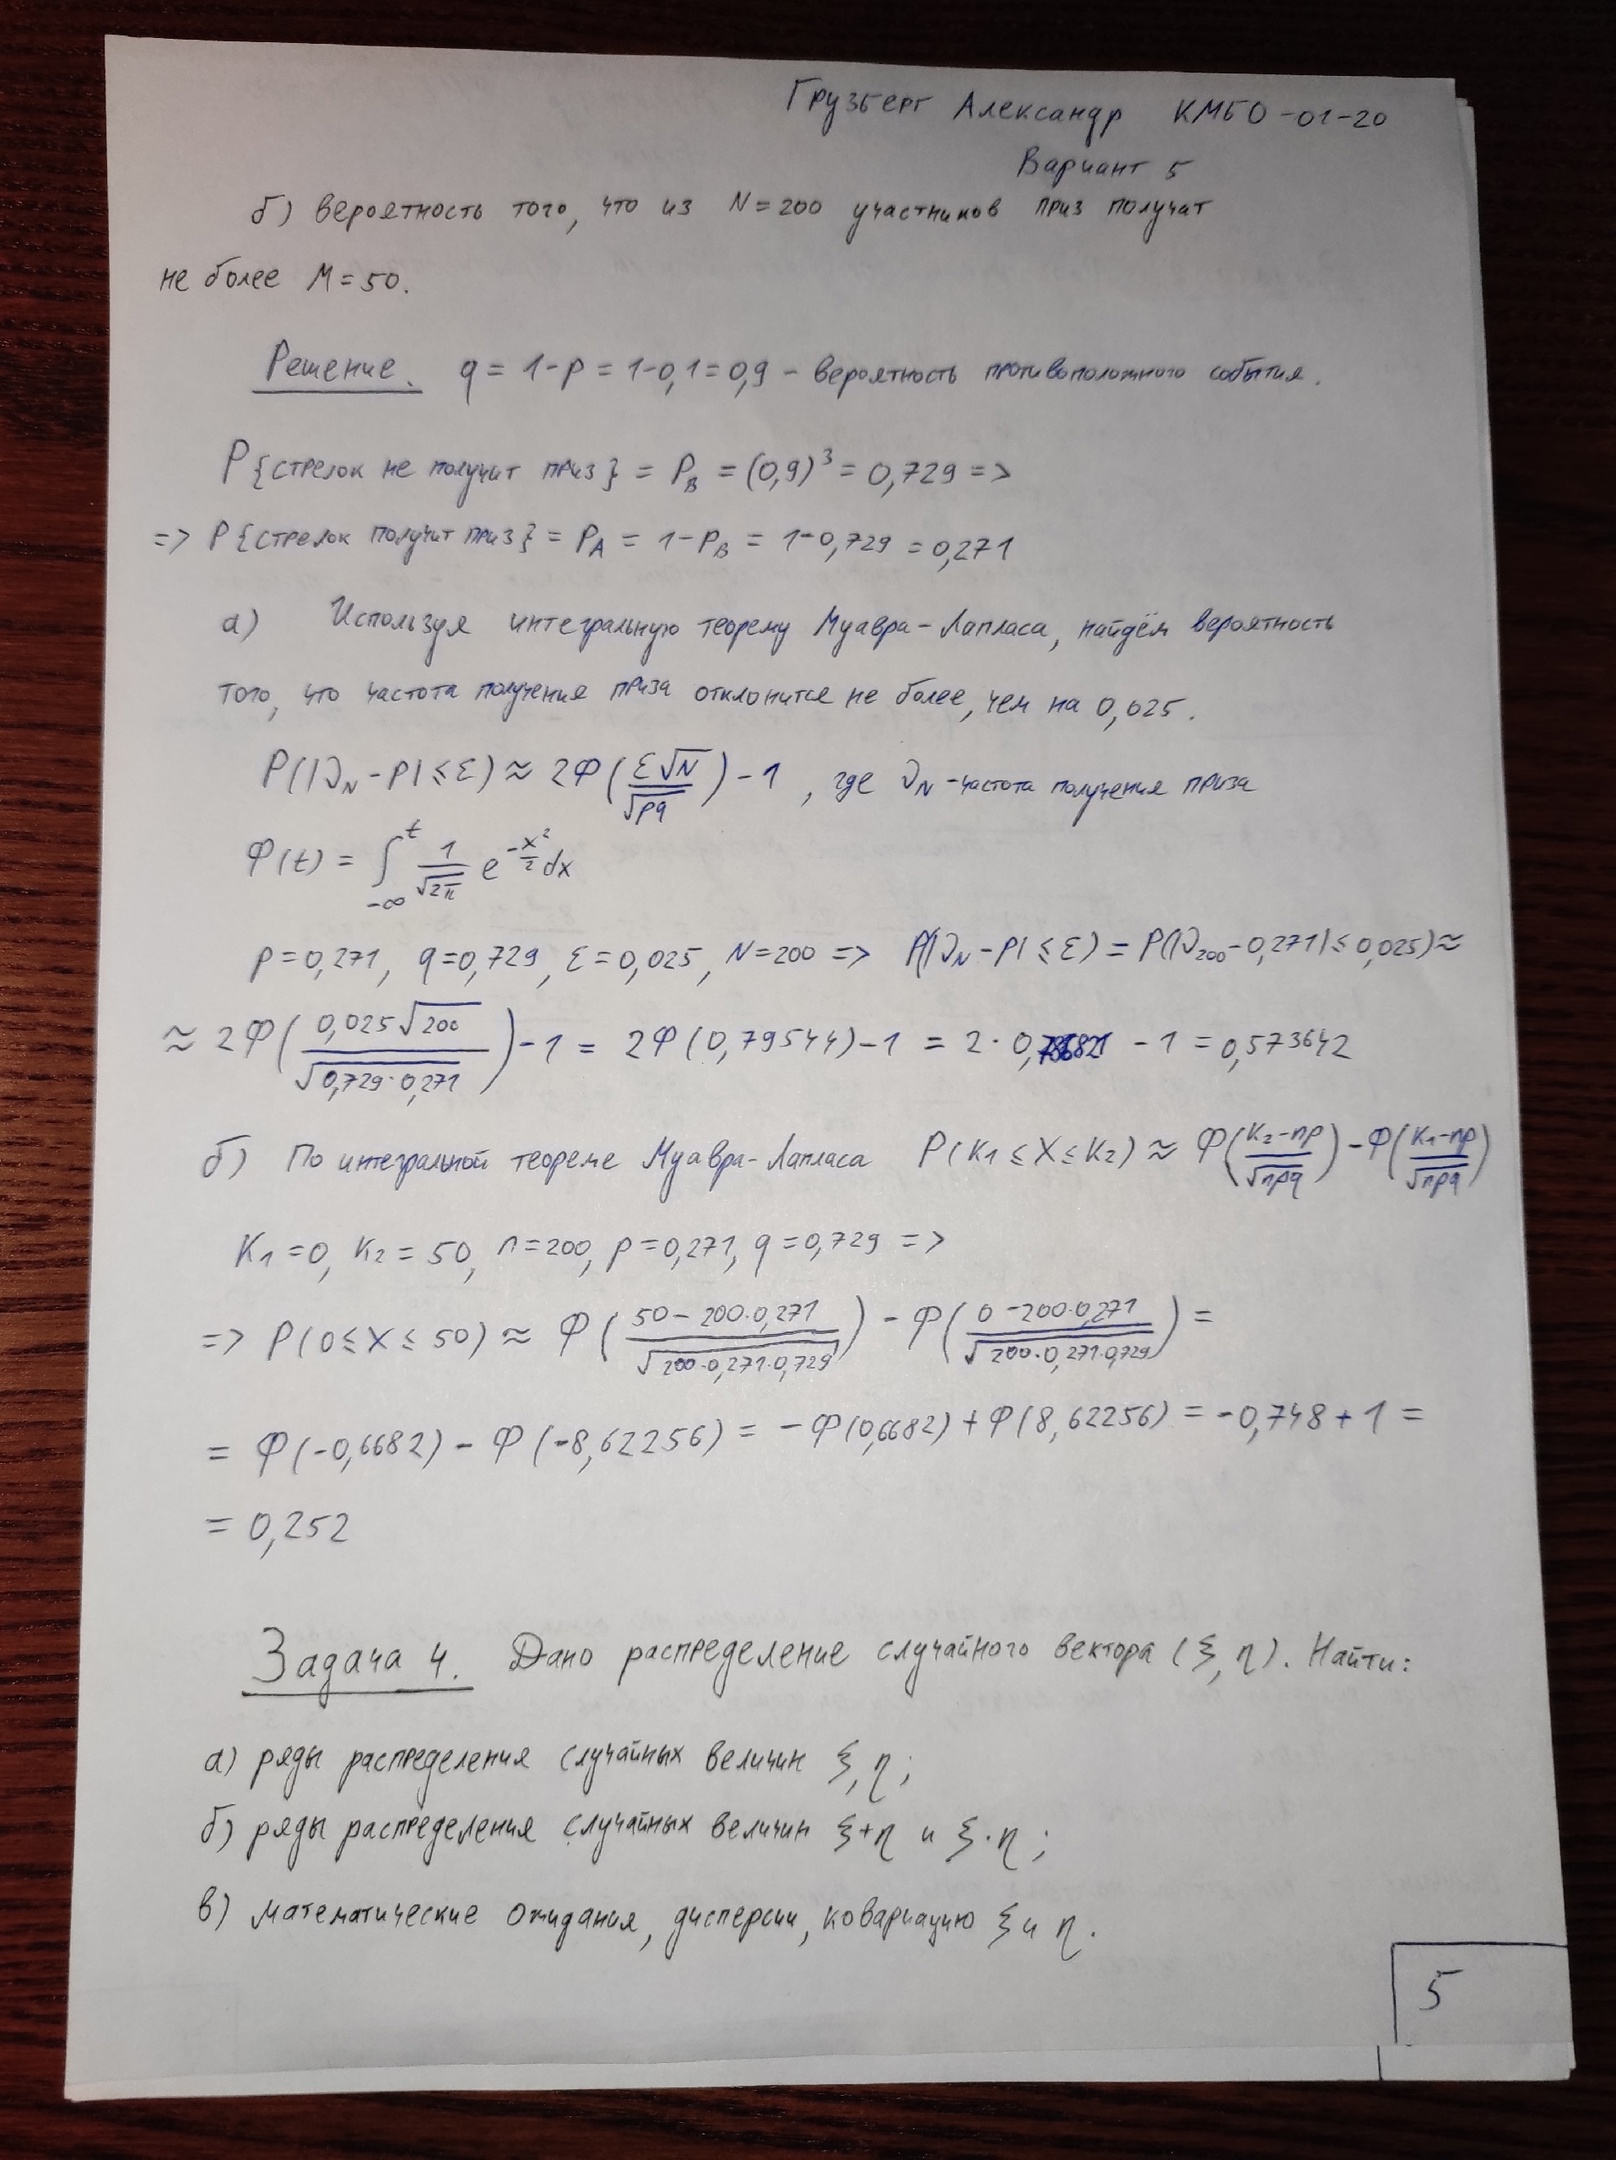 Грузберг Александр КМБО-01-20
Вариант 5
б) вероятность того, что из N=200 участников приз получат
не более M=50.
Решение. q = 1-p = 1-0,1=0,9 - вероятность противоположного события.
P{стрелок не получит приз} = P_B = (0,9)^3 = 0,729 =>
=> P{стрелок получит приз} = P_A = 1-P_B = 1-0,729 = 0,271
а) Используя интегральную теорему Муавра-Лапласа, найдём вероятность
того, что частота получения приза отклонится не более, чем на 0,025.
P(|ν_N - p| ≤ ε) ≈ 2Ф(ε√N/√pq) - 1, где ν_N - частота получения приза
Ф(t) = ∫_{-∞}^{t} 1/√2π e^{-x²/2} dx
p=0,271, q=0,729, ε=0,025, N=200 => P(|ν_N - p| ≤ ε) = P(|ν_200 - 0,271| ≤ 0,025) ≈
≈ 2Ф(0,025√200/√0,729·0,271) - 1 = 2Ф(0,79544) - 1 = 2· - 1 = 0,573642
б) По интегральной теореме Муавра-Лапласа P(K1 ≤ X ≤ K2) ≈ Ф(K2-np/√npq) - Ф(K1-np/√npq)
K1=0, K2=50, n=200, p=0,271, q=0,729 =>
=> P(0 ≤ X ≤ 50) ≈ Ф(50-200·0,271/√200·0,271·0,729) - Ф(0-200·0,271/√200·0,271·0,729) =
= Ф(-0,6682) - Ф(-8,62256) = -Ф(0,6682) + Ф(8,62256) = -0,748 + 1 =
= 0,252
Задача 4. Дано распределение случайного вектора (ξ, η). Найти:
а) ряды распределения случайных величин ξ, η;
б) ряды распределения случайных величин ξ+η и ξ·η;
в) математические ожидания, дисперсии, ковариацию ξ и η.
5